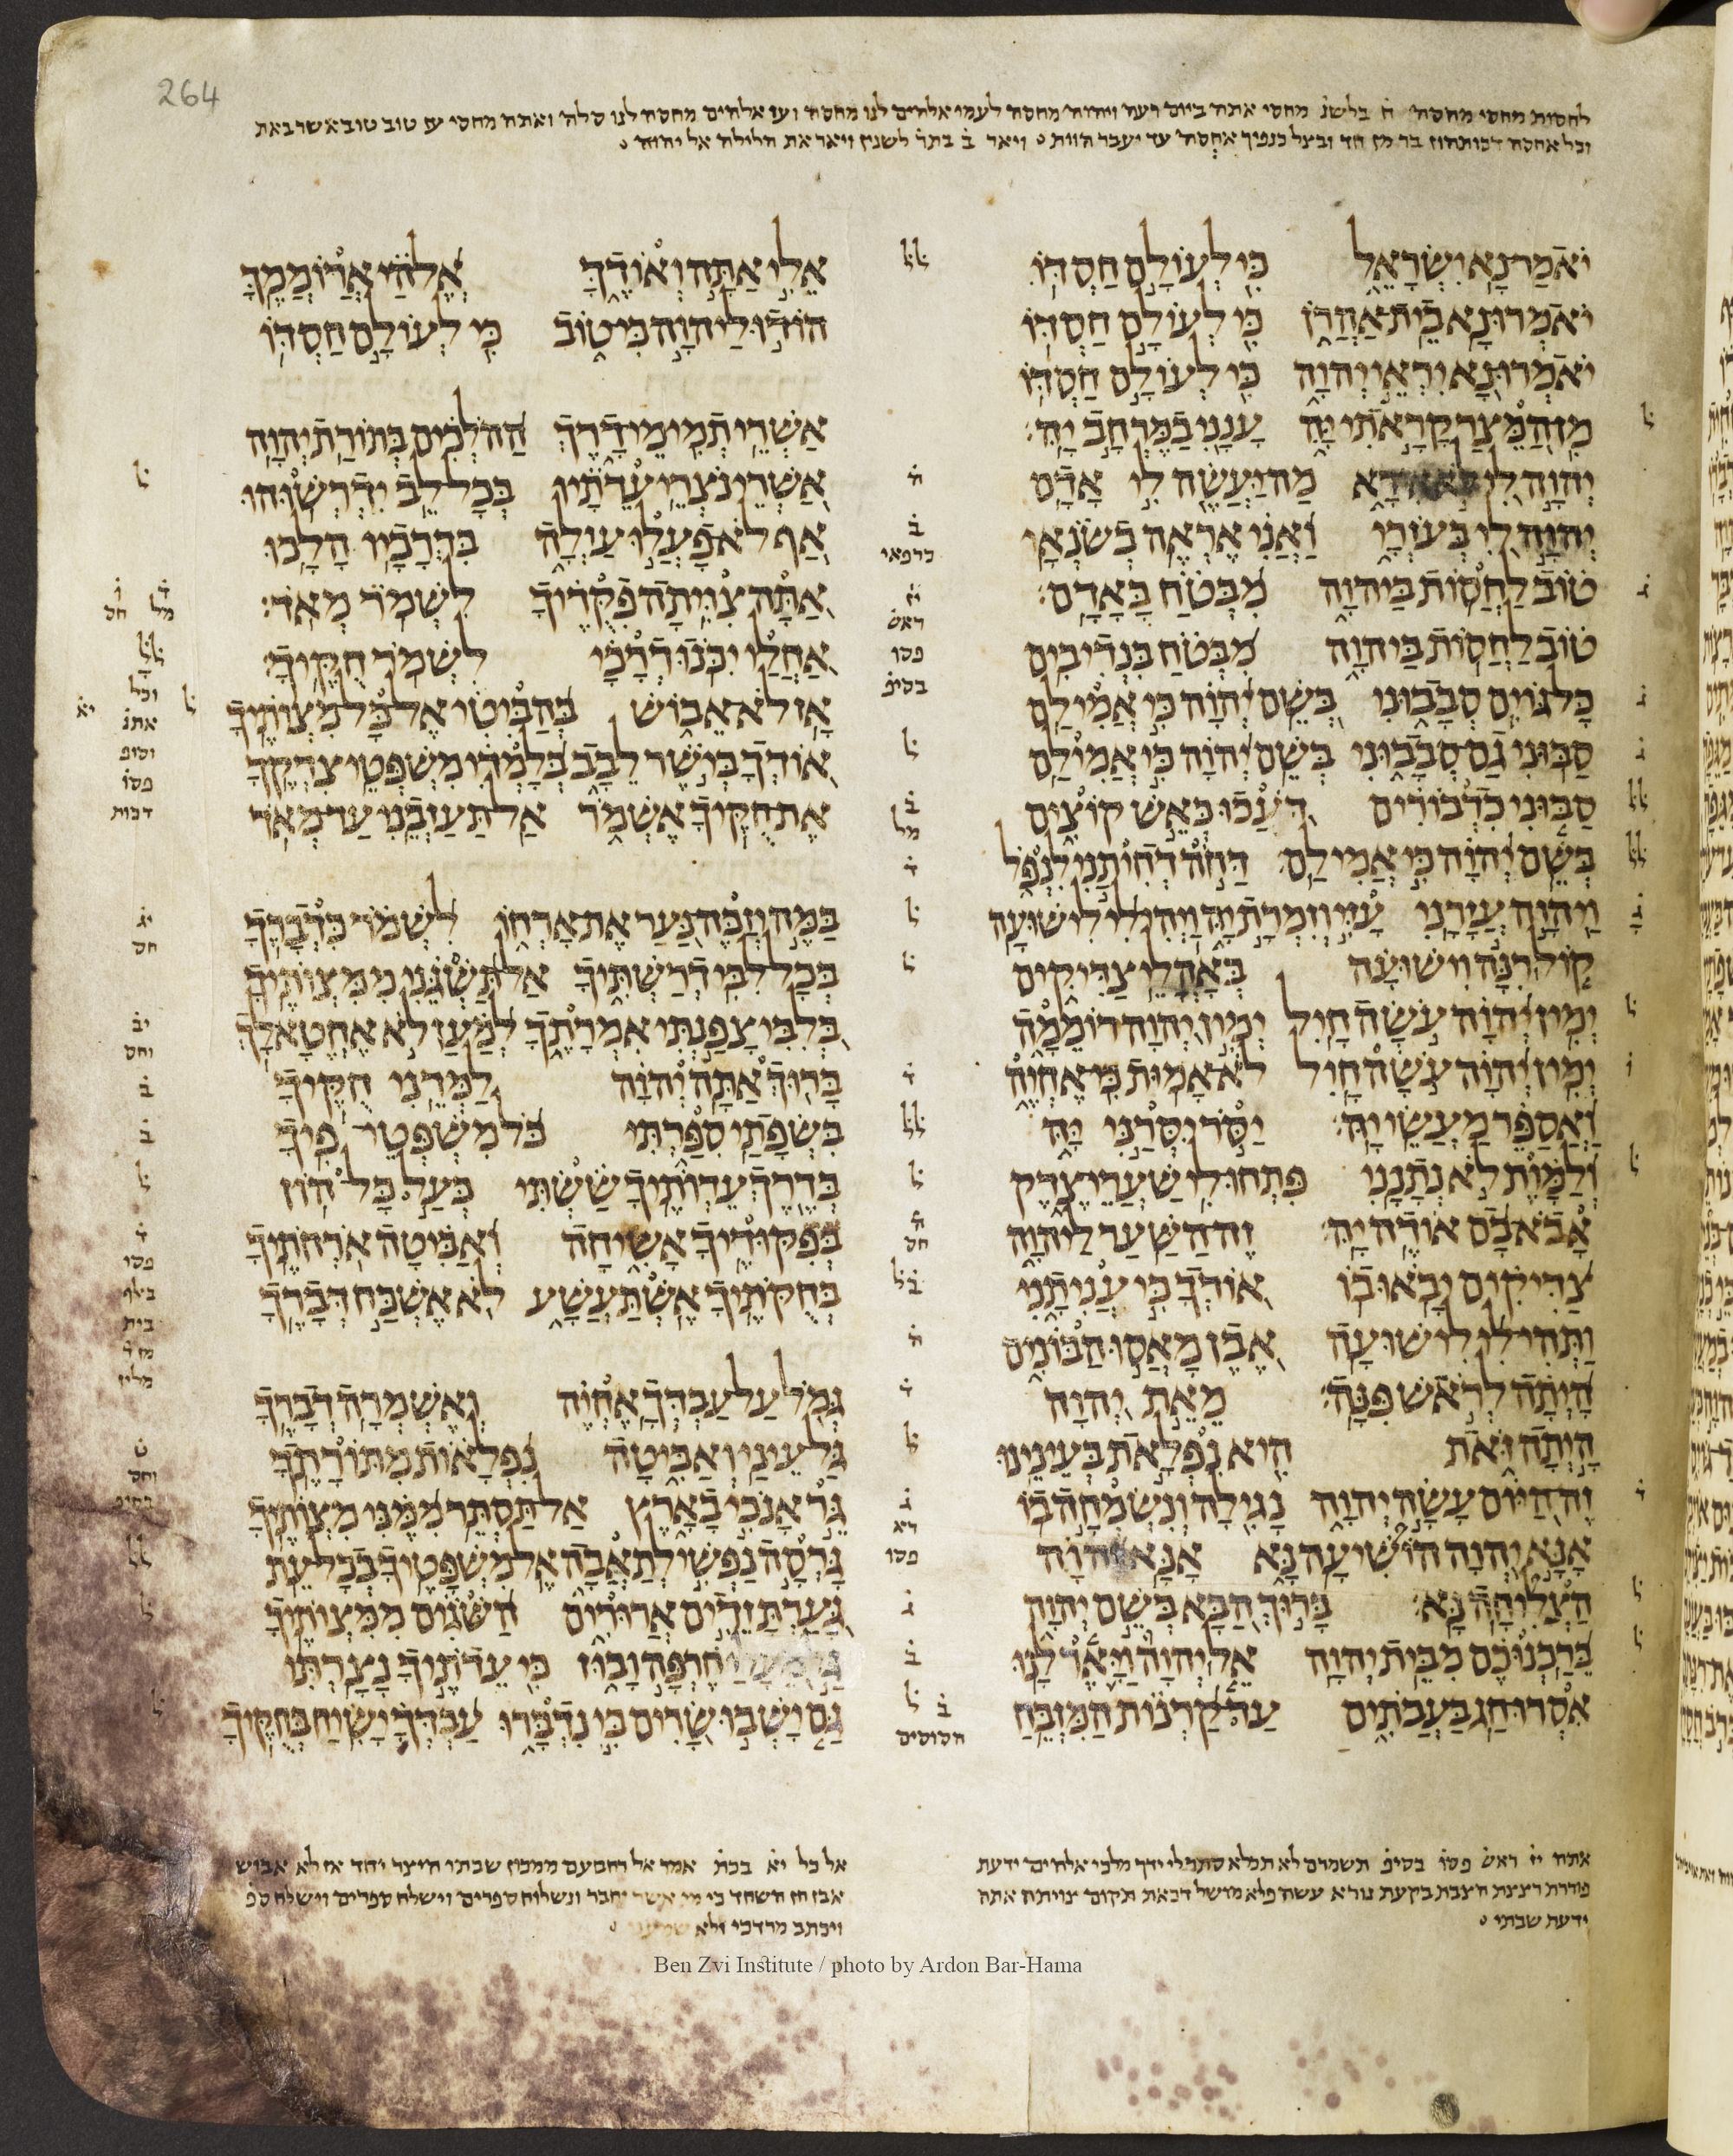 264
לחסות מחסי מחסה ח̇ בלשנ̇ מחסי אתה ביום רעה ויהוה מחסה לעמו אלהים לנו מחסה ועז אלהים מחסה לנו סלה ואתה מחסי עז טוב טוב אשר באת
וכל אחסה דכותהון בר מן חד ובצל כנפיך אחסה עד יעבר הוות ויאר ב̇ בתר̇ לשנין ויאר את הלילה אל יהוה
יאמר נא ישראל כי לעולם חסדו
יאמרו נא בית אהרן כי לעולם חסדו
יאמרו נא יראי יהוה כי לעולם חסדו
מן המצר קראתי יה ענני במרחב יה
יהוה לי לא אירא מה יעשה לי אדם
יהוה לי בעזרי ואני אראה בשנאי
טוב לחסות ביהוה מבטח באדם
טוב לחסות ביהוה מבטח בנדיבים
כל גוים סבבוני בשם יהוה כי אמילם
סבוני גם סבבוני בשם יהוה כי אמילם
סבוני כדבורים דעכו כאש קוצים
בשם יהוה כי אמילם דחה דחיתני לנפל
ויהוה עזרני עזי וזמרת יה ויהי לי לישועה
קול רנה וישועה באהלי צדיקים
ימין יהוה עשה חיל ימין יהוה רוממה
ימין יהוה עשה חיל לא אמות כי אחיה
ואספר מעשי יה יסר יסרני יה
ולמות לא נתנני פתחו לי שערי צדק
אבא בם אודה יה זה השער ליהוה
צדיקים יבאו בו אודך כי עניתני
ותהי לי לישועה אבן מאסו הבונים
היתה לראש פנה מאת יהוה
היתה זאת היא נפלאת בעינינו
זה היום עשה יהוה נגילה ונשמחה בו
אנא יהוה הושיעה נא אנא יהוה
הצליחה נא ברוך הבא בשם יהוה
ברכנוכם מבית יהוה אל יהוה ויאר לנו
אסרו חג בעבתים עד קרנות המזבח
אלי אתה ואודך אלהי ארוממך
הודו ליהוה כי טוב כי לעולם חסדו
אשרי תמימי דרך ההלכים בתורת יהוה
אשרי נצרי עדתיו בכל לב ידרשוהו
אף לא פעלו עולה בדרכיו הלכו
אתה צויתה פקדיך לשמר מאד
אחלי יכנו דרכי לשמר חקיך
אז לא אבוש בהביטי אל כל מצותיך
אודך בישר לבב בלמדי משפטי צדקך
את חקיך אשמר אל תעזבני עד מאד
במה יזכה נער את ארחו לשמר כדברך
בכל לבי דרשתיך אל תשגני ממצותיך
בלבי צפנתי אמרתך למען לא אחטא לך
ברוך אתה יהוה למדני חקיך
בשפתי ספרתי כל משפטי פיך
בדרך עדותיך ששתי כעל כל הון
בפקודיך אשיחה ואביטה ארחתיך
בחקתיך אשתעשע לא אשכח דברך
גמל על עבדך אחיה ואשמרה דברך
גל עיני ואביטה נפלאות מתורתך
גר אנכי בארץ אל תסתר ממני מצותיך
גרסה נפשי לתאבה אל משפטיך בכל עת
גערת זדים ארורים השגים ממצותיך
חרפה ובוז כי עדתיך נצרתי
גם ישבו שרים בי נדברו עבדך ישיח בחקיך
אתה יז̇ ראש̇ פסו̇ בסיפ̇ תשמרם לא תכלא סתר לי ידך מלכי אלהים ידעת
פוררת רצצת חצבת בקעת נורא עשה פלא מושל דכאת תקום צויתה אתה
ידעת שבתי
אל כל יא̇ בכת̇ אמר אל רחבעם ממכון שבתו היצר יחד אז לא אבוש
אבן חן השחד כי מי אשר יחבר ונשלוח ספרים וישלח ספרים וישלח ספ̇
ויכתב מרדכי ולא
Ben Zvi Institute / photo by Ardon Bar-Hama